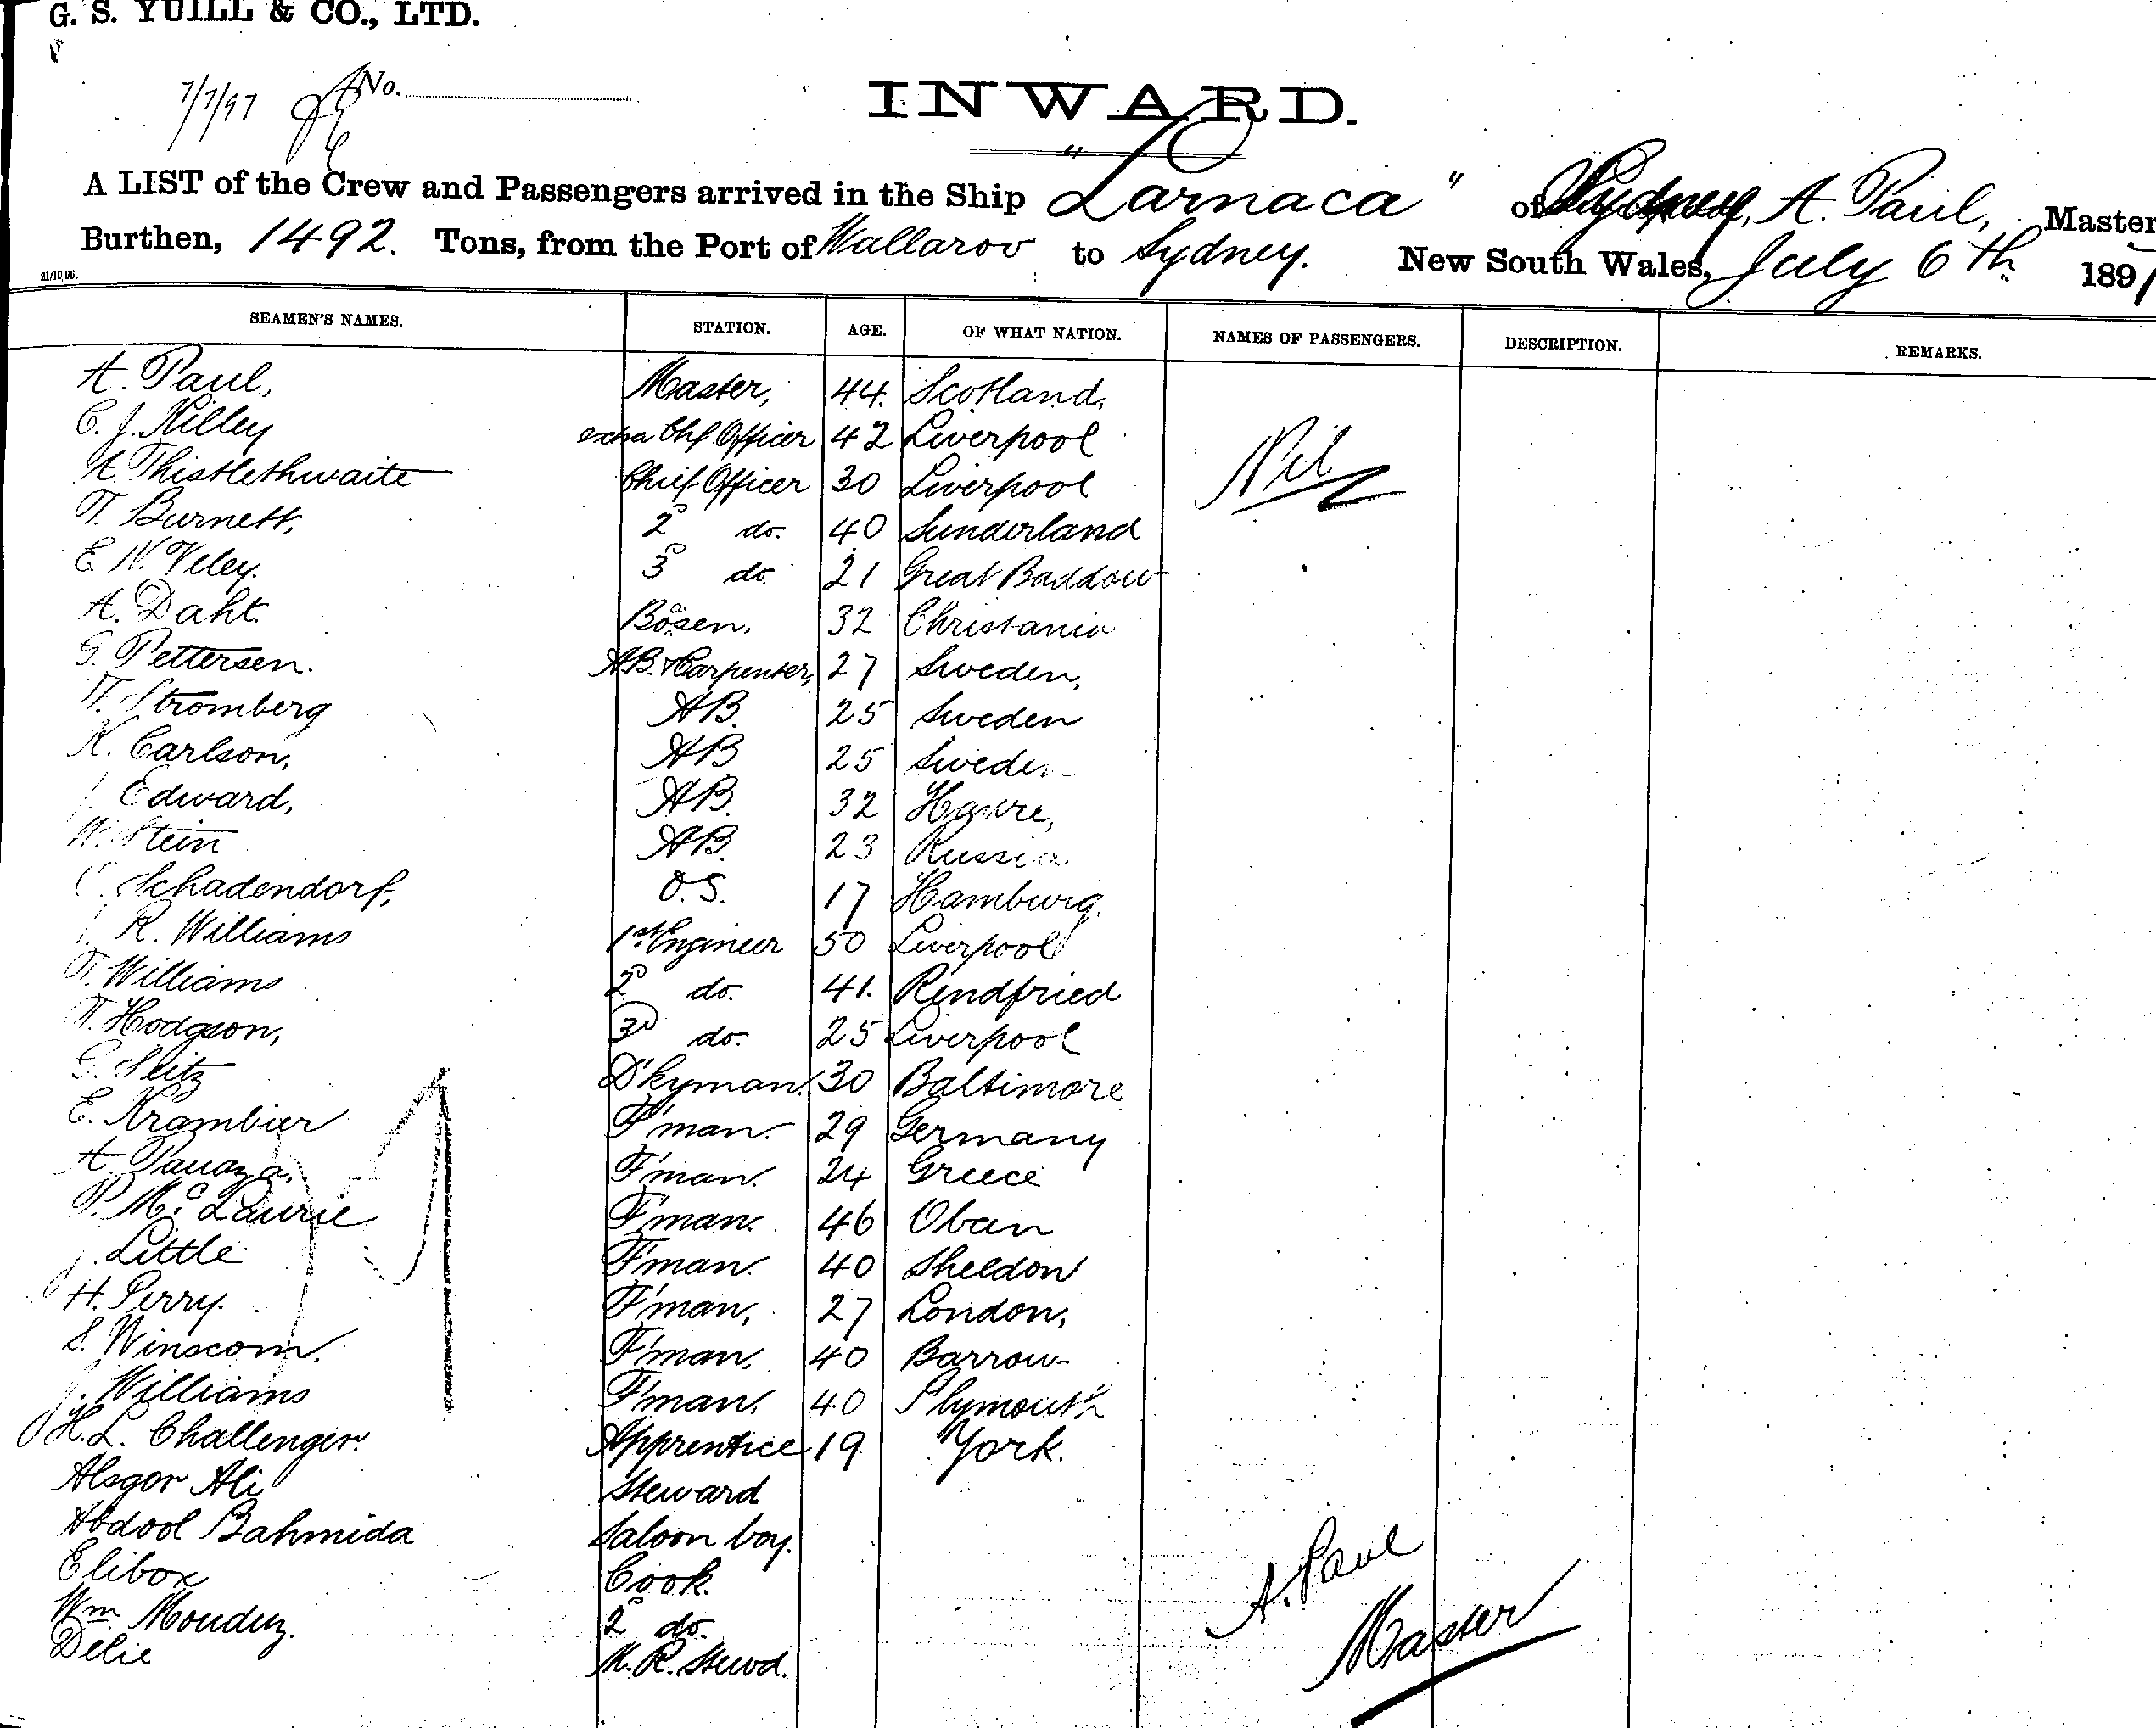 G. S. YUILL & CO., LTD.
7/7/97 No.
INWARD.
A LIST of the Crew and Passengers arrived in the Ship "Larnaca" of Sydney, A. Paul, Master
Burthen, 1492. Tons, from the Port of Wallaroo to Sydney. New South Wales, July 6th 1897
21/10/96.
SEAMEN'S NAMES. STATION. AGE. OF WHAT NATION. NAMES OF PASSENGERS. DESCRIPTION. REMARKS.
A. Paul, Master, 44. Scotland,
C. J. Killey extra Chf Officer 42 Liverpool Nil
A. Thistlethwaite Chief Officer 30 Liverpool
T. Burnett, 2D do. 40 Sunderland
E. N. Veley. 3D do. 21 Great Baddow
A. Daht. Bosen. 32 Christania
G. Pettersen. AB. & Carpenter, 27 Sweden,
Stromberg AB. 25 Sweden
K. Carlson, AB 25 Sweden
Edward, AB. 32 Havre,
W. Stein AB. 23 Russia
C. Schadendorf, O.S. 17 Hamburg.
R. Williams 1st Engineer 50 Liverpool
T. Williams 2D do. 41. Rindfried
T. Hodgson, 3D do. 25 Liverpool
G. Seitz D'kyman. 30 Baltimore
E. Krambier F'man. 29 Germany
A. F'man. 24 Greece
P. Mc Laurie F'man. 46 Oban
J. Little F'man. 40 Sheldon
H. Perry. F'man, 27 London,
S. Winscom. F'man. 40 Barrow
J. Williams F'man. 40 Plymouth
H. L. Challenger. Apprentice 19 York.
Alsgor Ali Steward
Abdool Bahmida Saloon boy.
Elibox Cook.
Wm Mouduz. 2D do.
Delie M. R. Stewd.
A. Paul
Master